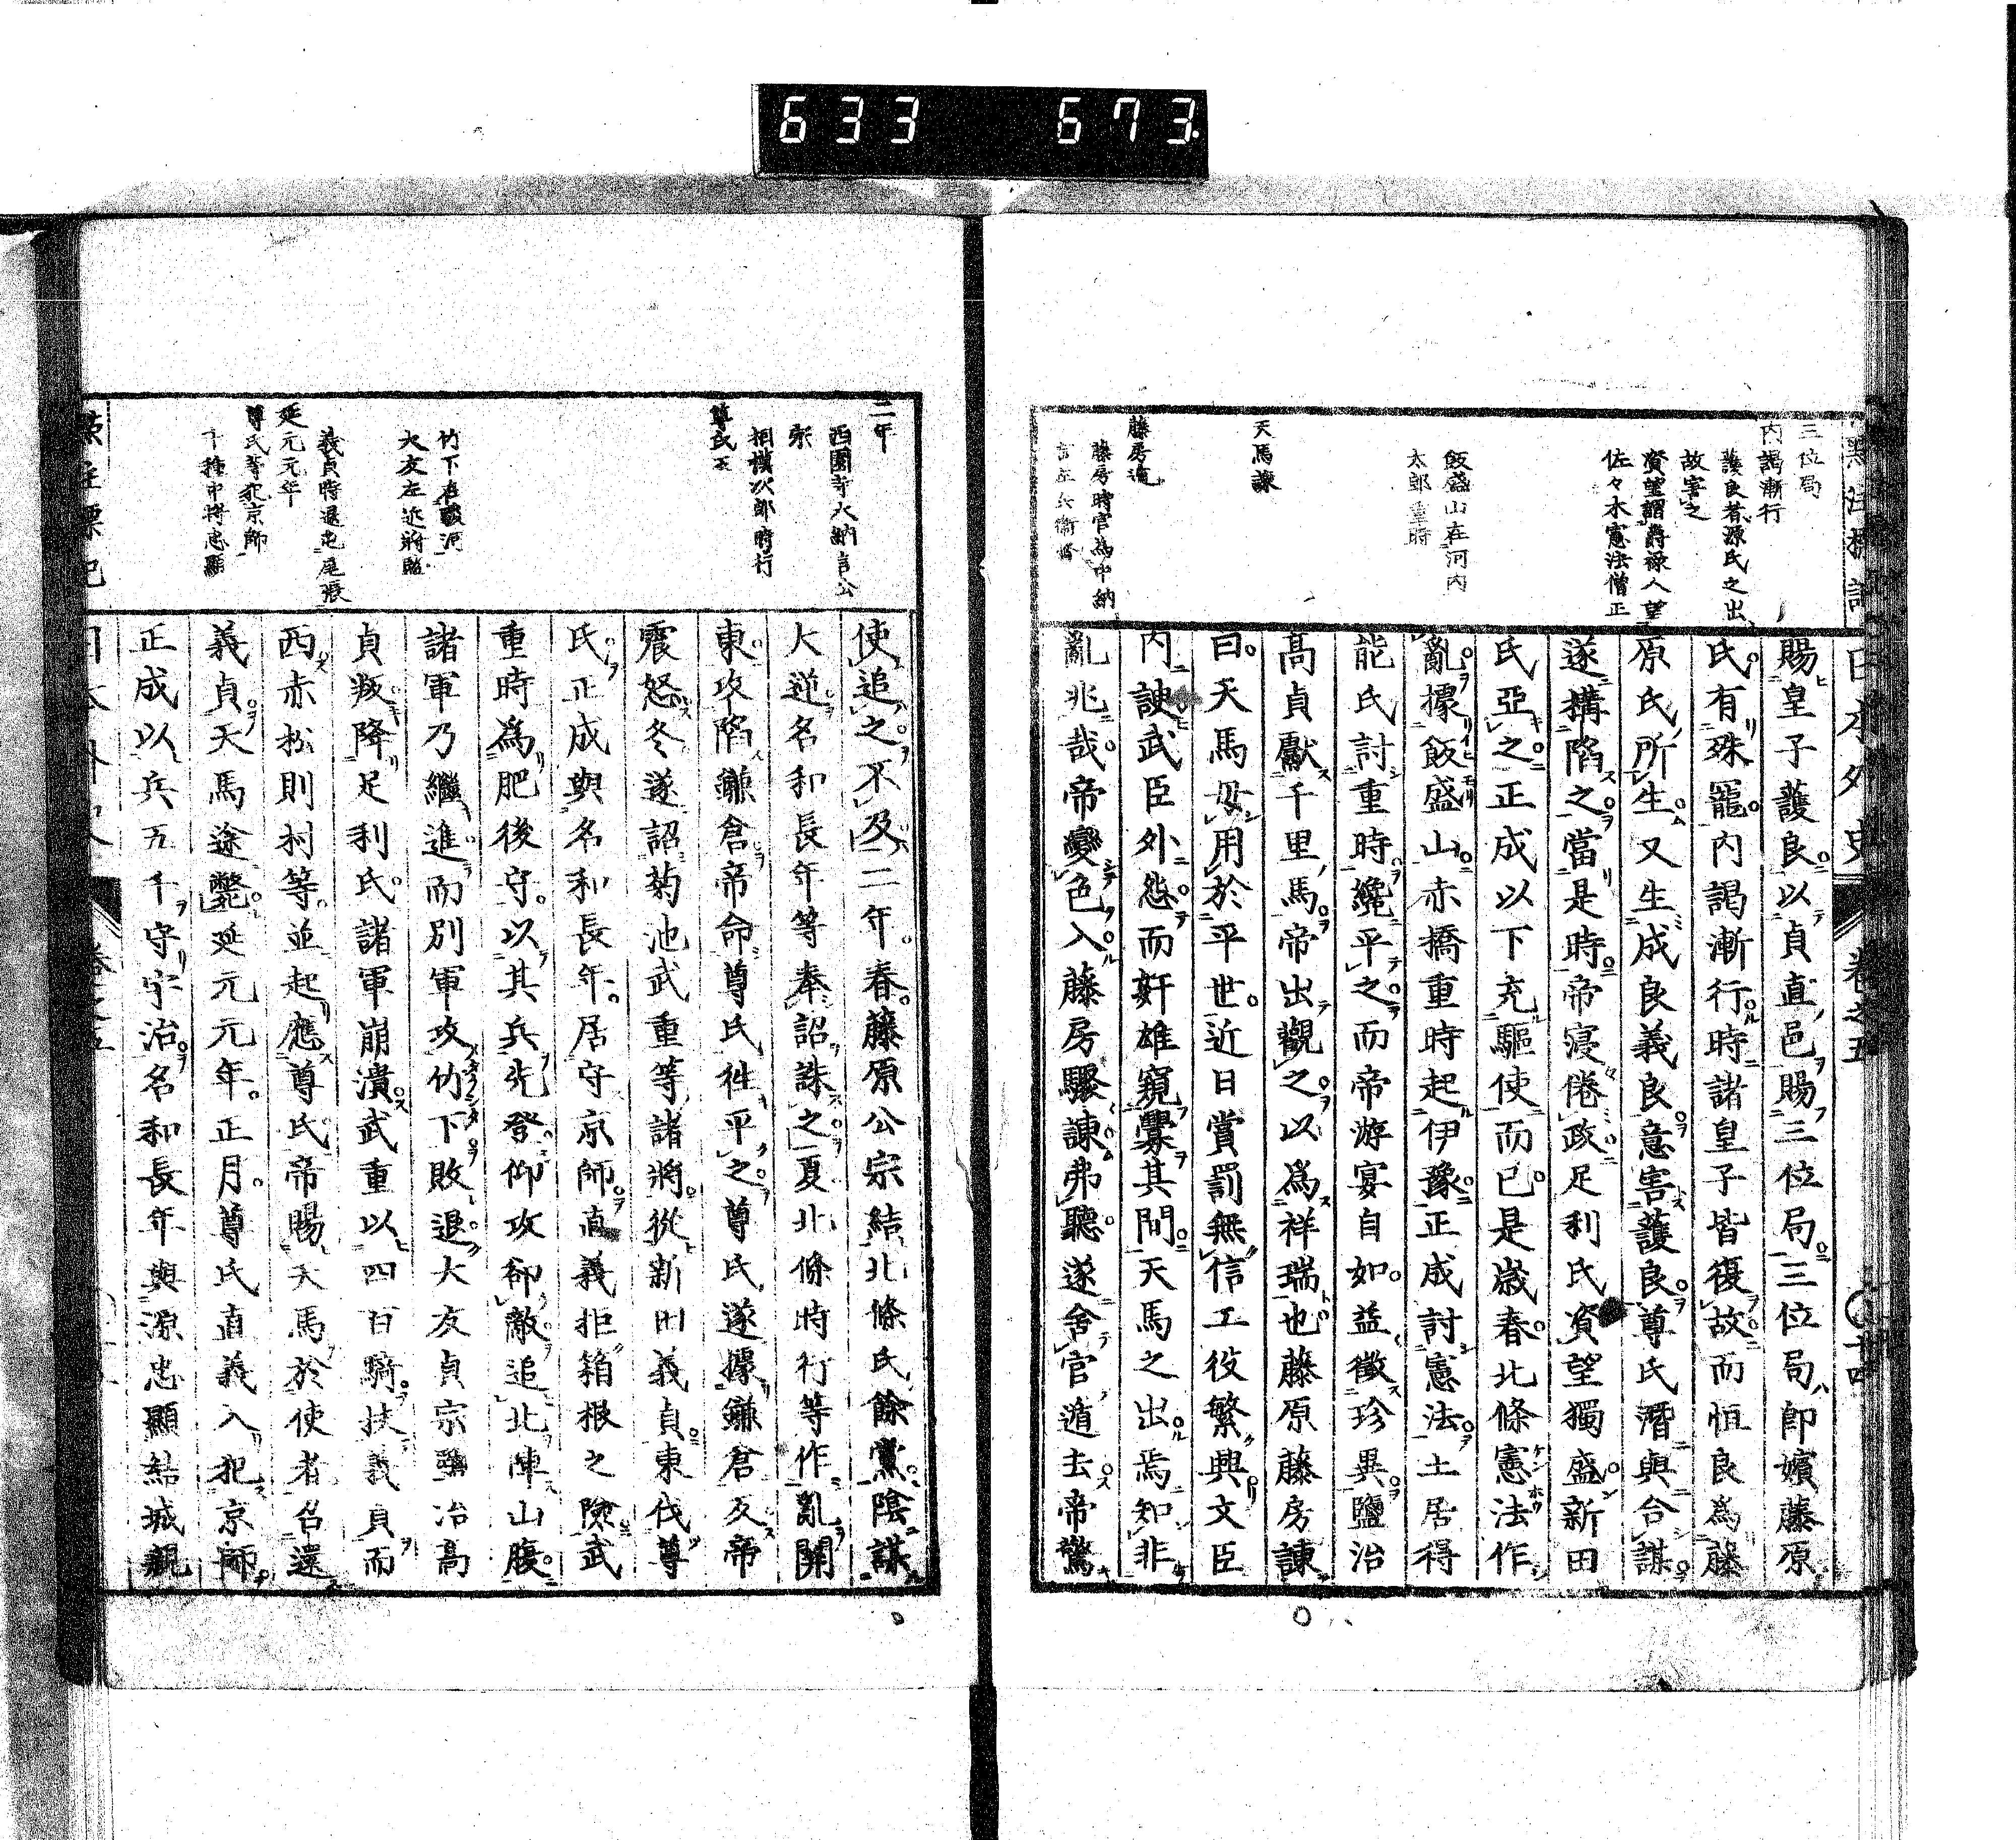 633 673
日本外史 卷之五 十四
三位局
內謁漸行
護良若源氏之出
故害之
資望謂爵祿人望
佐々木憲法僧正
飯盛山在河內
太郎重時
天馬諫
藤房遁
藤房時官為中納
言左兵衛督
賜皇子護良以貞直邑賜三位局三位局卽嬪藤原
氏有殊寵內謁漸行時諸皇子皆復故而恒良爲藤
原氏所生又生成良義良意害護良尊氏潛與合謀
遂搆陷之當是時帝寖倦政足利氏資望獨盛新田
氏亞之正成以下充驅使而已是歲春北條憲法作
亂據飯盛山赤橋重時起伊豫正成討憲法土居得
能氏討重時纔平之而帝游宴自如益徵珍異鹽治
高貞獻千里馬帝出觀之以爲祥瑞也藤原藤房諫
曰天馬毋用於平世近日賞罰無信工役繁興文臣
內諛武臣外怨而奸雄窺釁其間天馬之出焉知非
亂兆哉帝變色入藤房驟諫弗聽遂舍官遁去帝驚
二年
西園寺大納言公
宗
相模次郎時行
尊氏反
竹下在駿河
大友左近將監
義貞時退屯尾張
延元元年
尊氏等犯京師
千種中將忠顯
使追之不及二年春藤原公宗結北條氏餘黨陰謀
大逆名和長年等奉詔誅之夏北條時行等作亂關
東攻陷鎌倉帝命尊氏往平之尊氏遂據鎌倉反帝
震怒冬遂詔菊池武重等諸將從新田義貞東伐尊
氏正成與名和長年居守京師直義拒箱根之險武
重時爲肥後守以其兵先登仰攻郤敵追北陣山腹
諸軍乃繼進而別軍攻竹下敗退大友貞宗鹽冶高
貞叛降足利氏諸軍崩潰武重以四百騎扶義貞而
西赤松則村等並起應尊氏帝賜天馬於使者召還
義貞天馬途斃延元元年正月尊氏直義入犯京師
正成以兵五千守宇治名和長年與源忠顯結城親